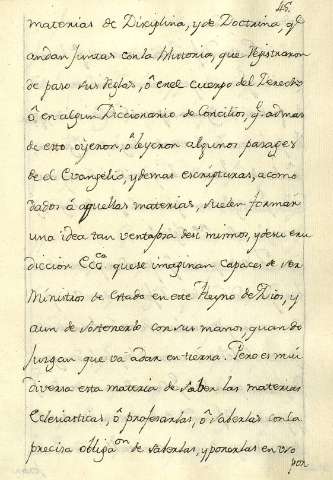 45.
materias de Disciplina, y de Doctrina, q̃
andan Juntas con la Historia, que Registraron
de paso sus Reglas, ô en el Cuerpo del Derecho
ô en algun Diccionario de Concilios, q̃ ademas
de esto oyeron, ô leyeron algunos pasages
de el Evangelio, y demas escripturas, acomo
dados â aquellas materias, suelen formar
una idea tan ventajosa de si mismos, y de su eru
dicción Ecc.ca que se imaginan Capaces de ser
Ministros de Estado en este Reyno de Dios, y
aun de sostenerlo con sus manos, quando
Juzgan que va a dar en tierra. Pero es mui
diversa esta materia de saber las materias
Eclesiasticas, ô profesarlas, ô saberlas con la
precisa obliga.on de saberlas, y ponerlas en uso
por